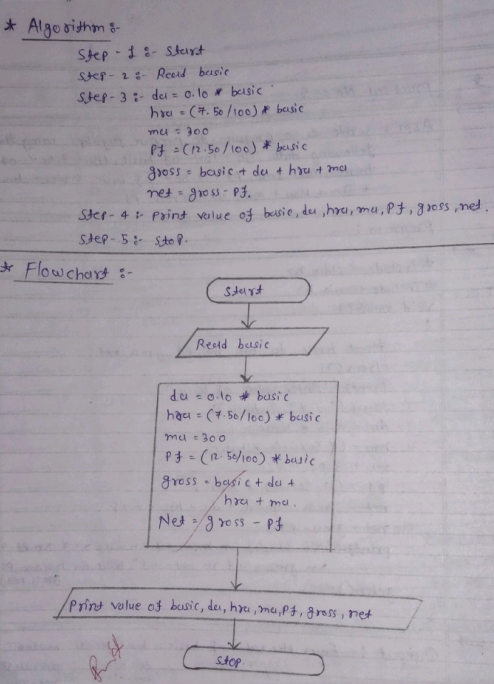 * Algorithm :-
Step - 1 :- Start
Step - 2 :- Read basic
Step - 3 :- da = 0.10 * basic
hra = (7.50/100) * basic
ma = 300
Pf = (12.50/100) * basic
gross = basic + da + hra + ma
net = gross - Pf.
Step - 4 :- Print value of basic, da, hra, ma, Pf, gross, net.
Step - 5 :- Stop.
* Flowchart :-
Start
Read basic
da = 0.10 * basic
hra = (7.50/100) * basic
ma = 300
Pf = (12.50/100) * basic
gross = basic + da +
hra + ma.
Net = gross - Pf
Print value of basic, da, hra, ma, Pf, gross, net
Stop